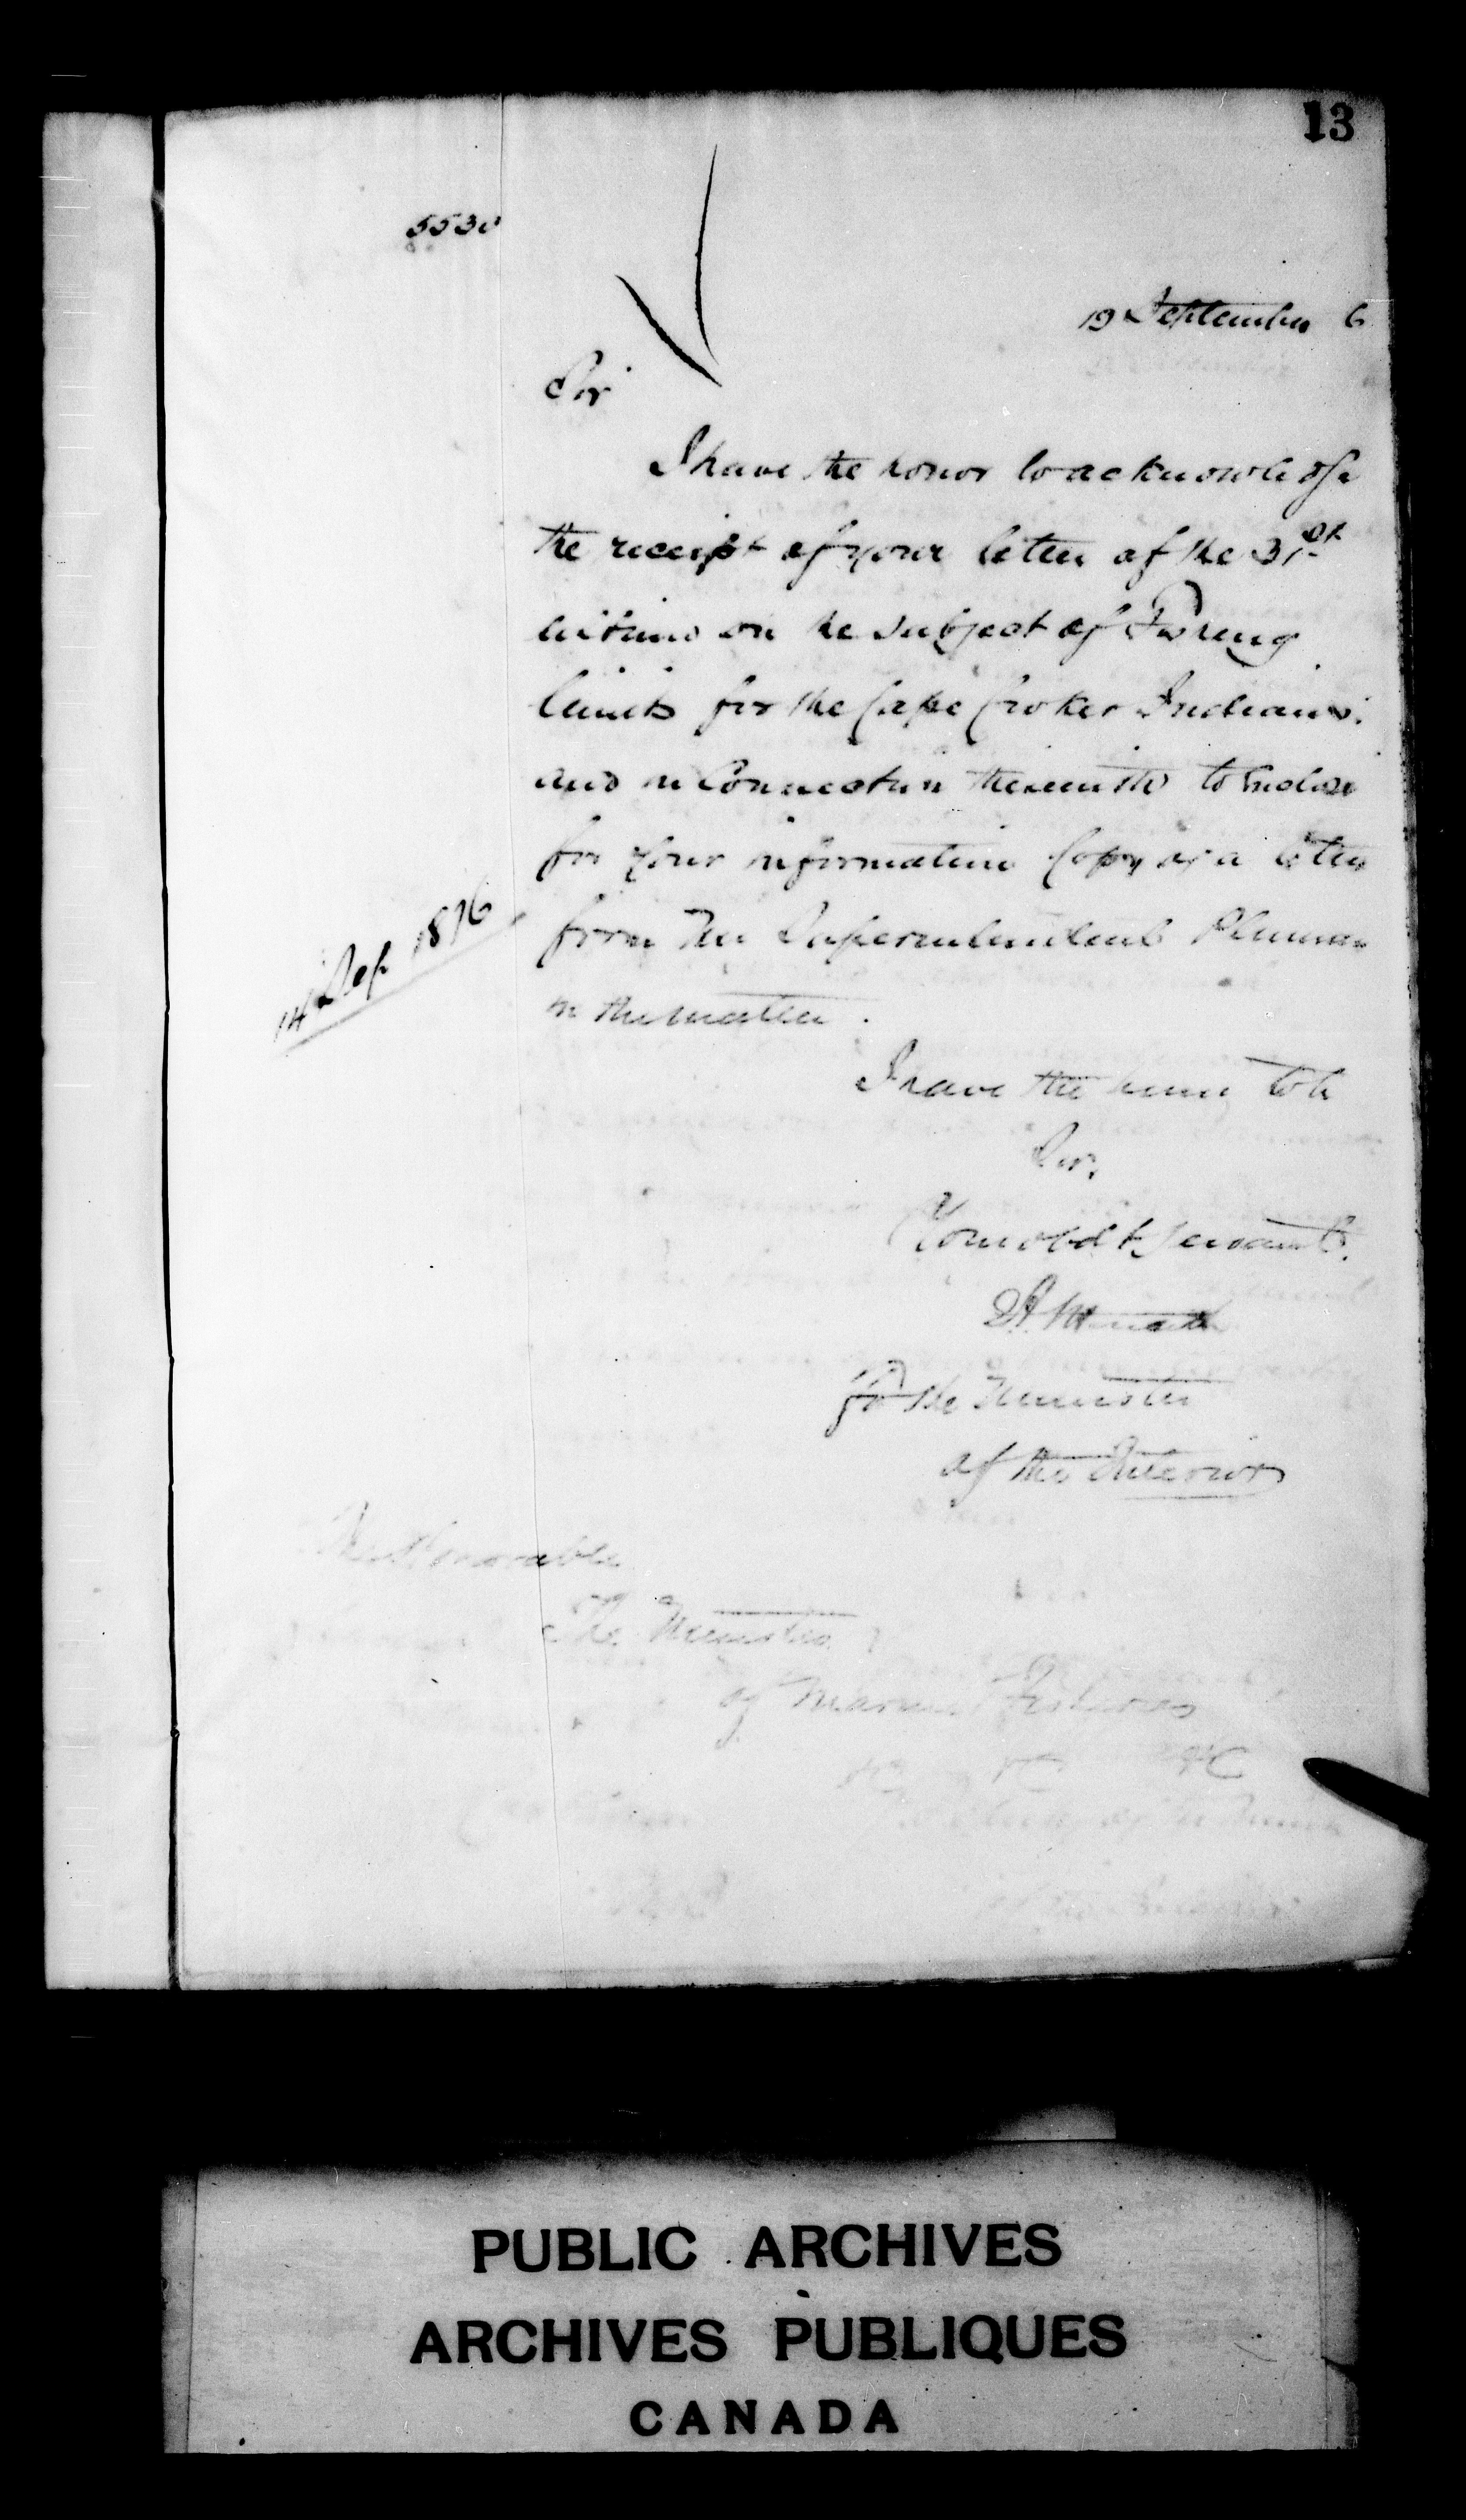 13
5530
19 September 6
Sir
I have the honor to acknowledge
the receipt of your letter of the 31st
ultimo on the subject of Fishing
limits for the Cape Croker Indians.
and in Connection therewith to Enclose
for your information Copy of a letter
14 Sep 1876
from Mr Superintendent Plummer
in the matter.
I have the honor to be
Sir,
Your obdt servant
for the Minister
of the Interior
The Honorable
The Minister
of Marine Fisheries
&c &c &c
PUBLIC ARCHIVES
ARCHIVES PUBLIQUES
CANADA